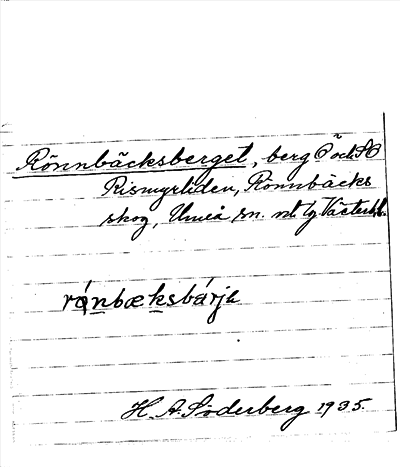 Rönnbäcksberget, berg Ö och SO
Rismyrliden, Rönnbäcks
skog, Umeå sn.
rǻnbæksbárjɩ
H. A. Söderberg 1935.